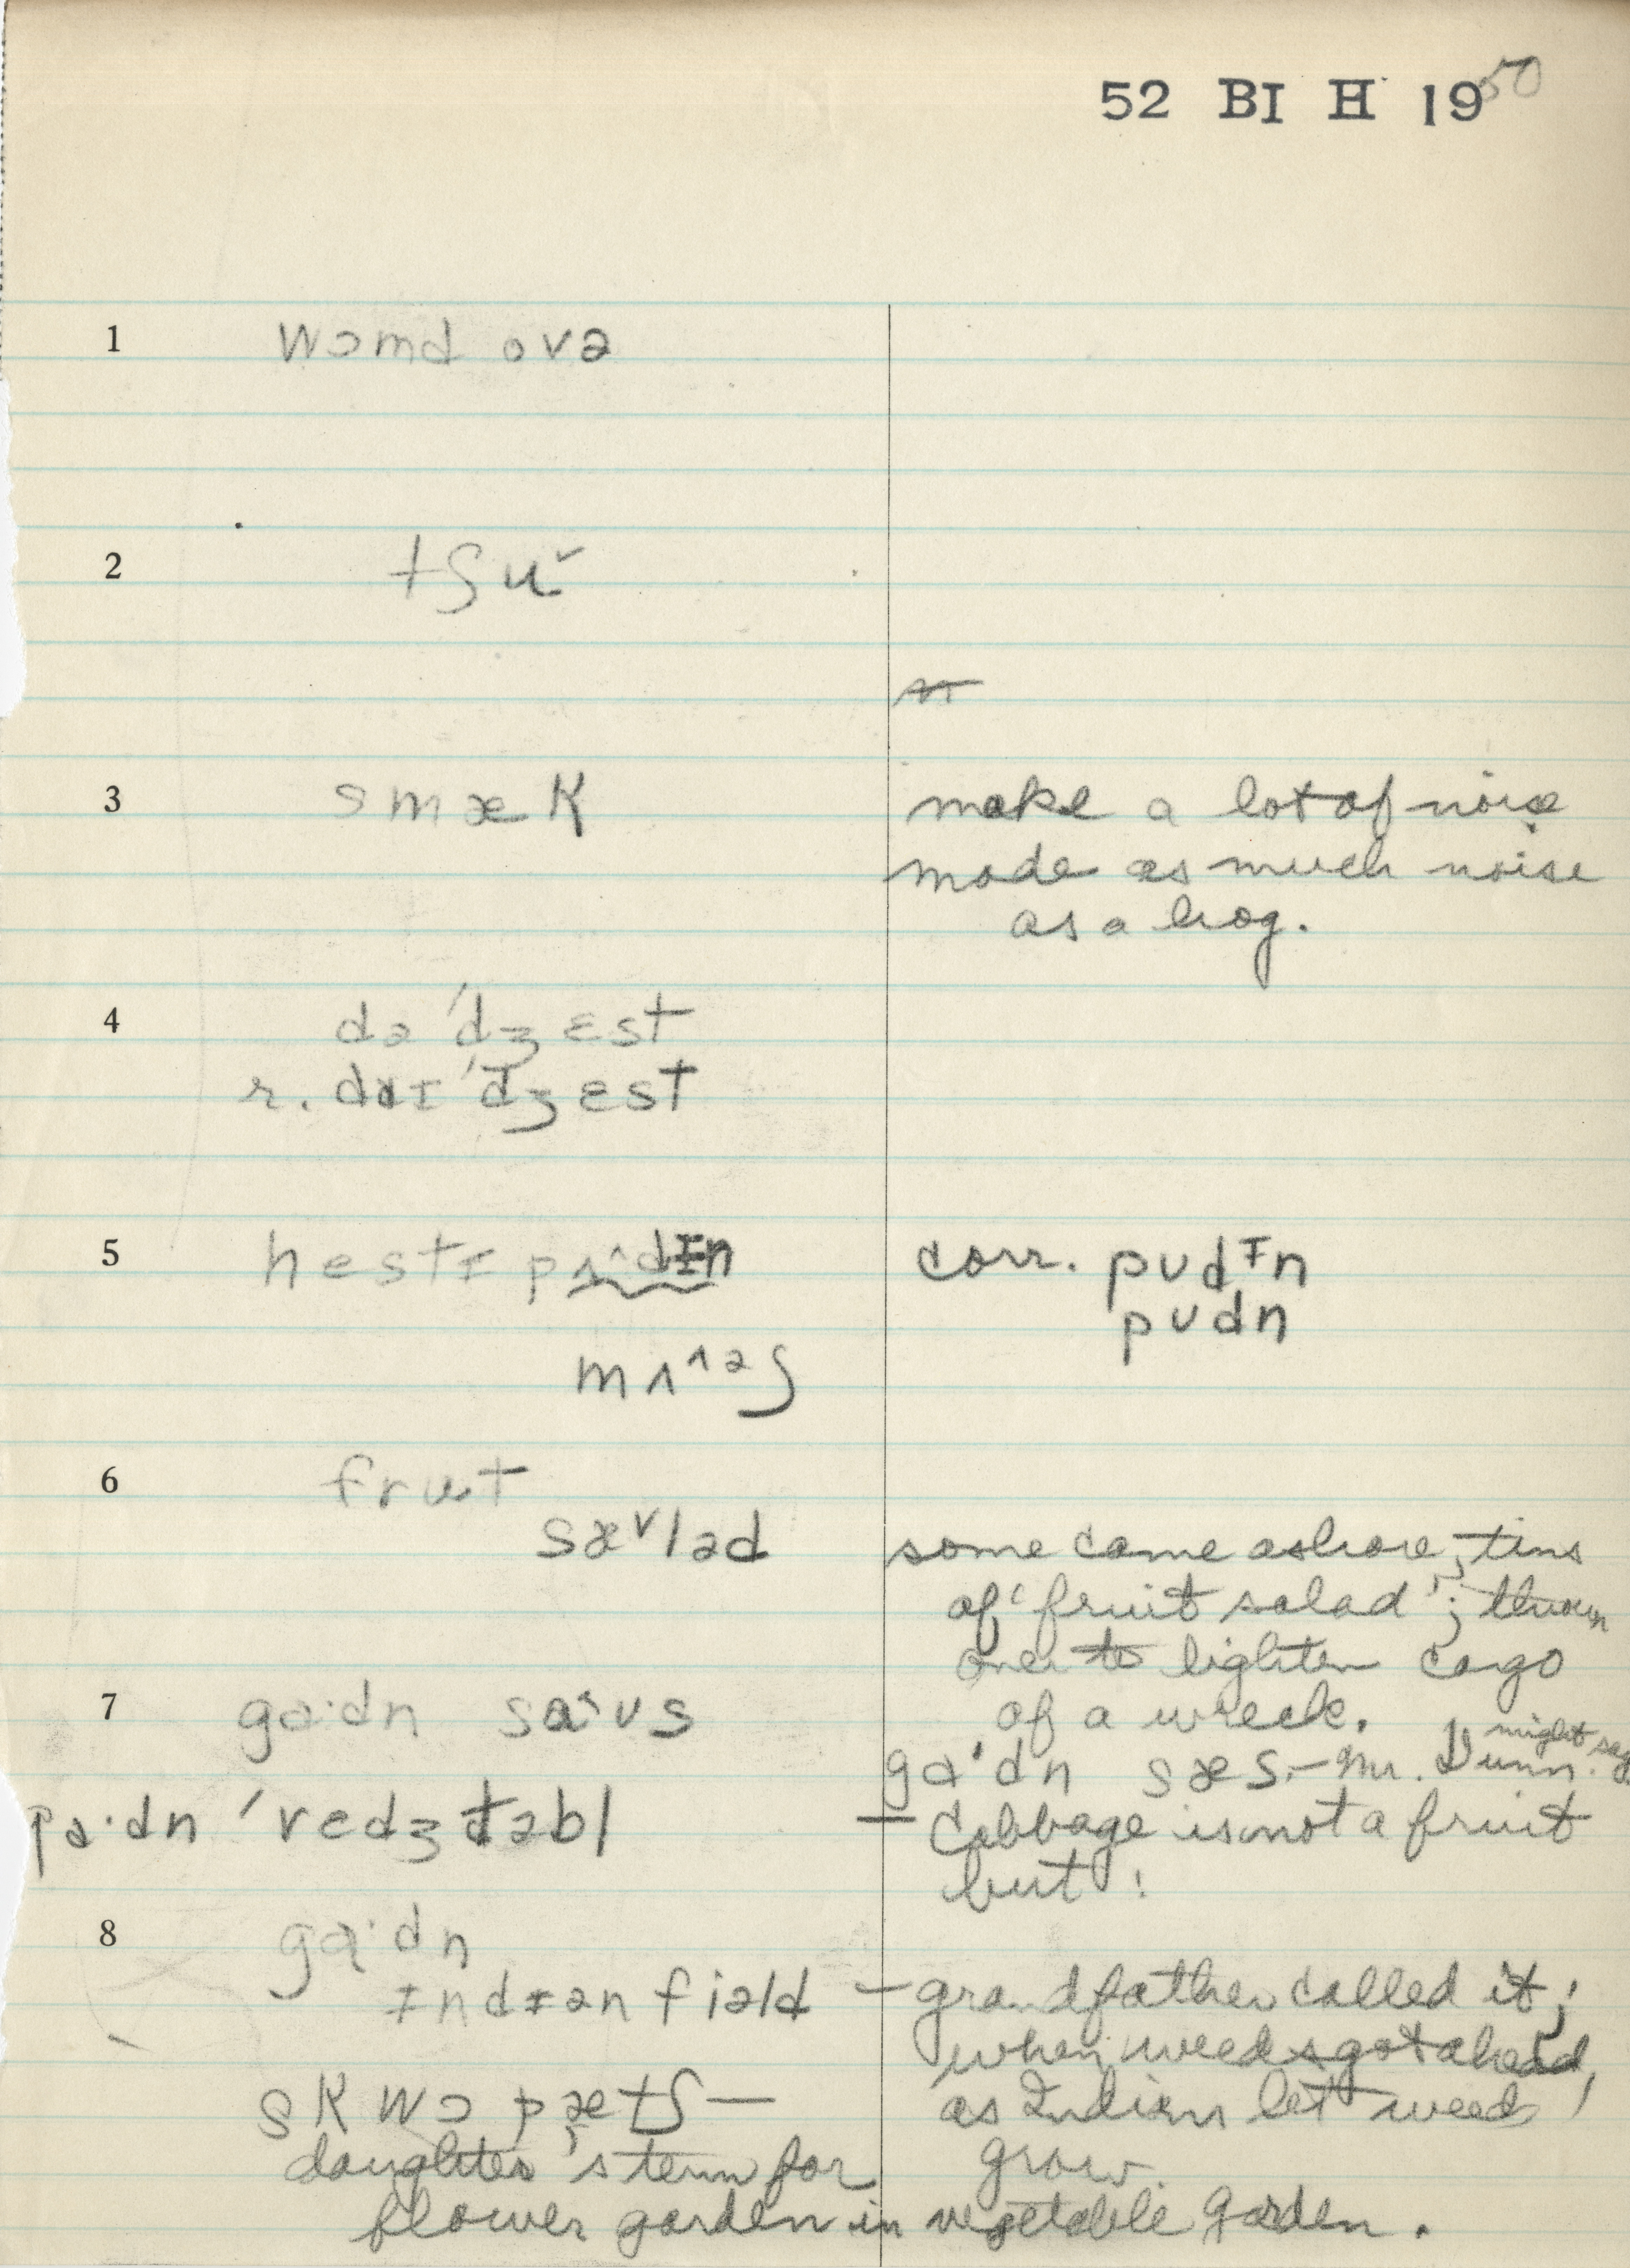 52 BI II 1950
1 wɔmd ovə
2 tʃu˅
3 smæk
make a lot of noise
made as much noise
as a hog.
4 də ˈdʒɛst
r. daɪ ˈdʒɛst
5 hestɪ pʌ^dɪn
corr. pudɪn
pudn
mʌ^əʃ
6 frut
sæ˅ləd
some came ashore, tins
of 'fruit salad'; thrown
over to lighten cargo
of a wreck.
7 ga·dn sa˂us
ga·dn sæs – Mr. Dunn. might say
ga·dn ˈvedʒtəbl
– Cabbage is not a fruit
but !
8 ga·dn
ɪndɪən fiəld – grandfather called it;
when weeds got ahead,
as Indians let weeds
grow.
skwɔ pætʃ –
daughter's term for
flower garden in vegetable garden.